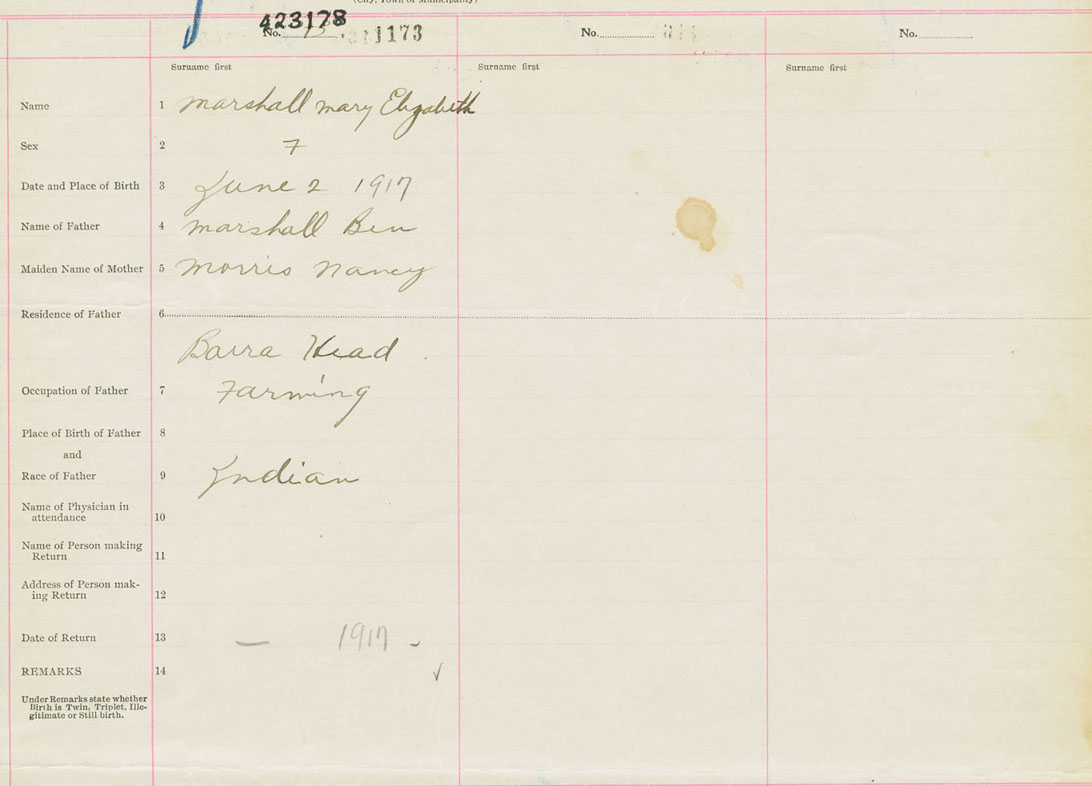 (City, Town or Municipality)
423178
No. 13 1173
No.
No.
Surname first
Surname first
Surname first
Name 1 Marshall Mary Elizabeth
Sex 2 F
Date and Place of Birth 3 June 2 1917
Name of Father 4 Marshall Ben
Maiden Name of Mother 5 Morris Nancy
Residence of Father 6
Barra Head
Occupation of Father 7 Farming
Place of Birth of Father 8
and
Race of Father 9 Indian
Name of Physician in
attendance 10
Name of Person making
Return 11
Address of Person mak-
ing Return 12
Date of Return 13 — 1917
REMARKS 14
Under Remarks state whether
Birth is Twin, Triplet, Ille-
gitimate or Still birth.